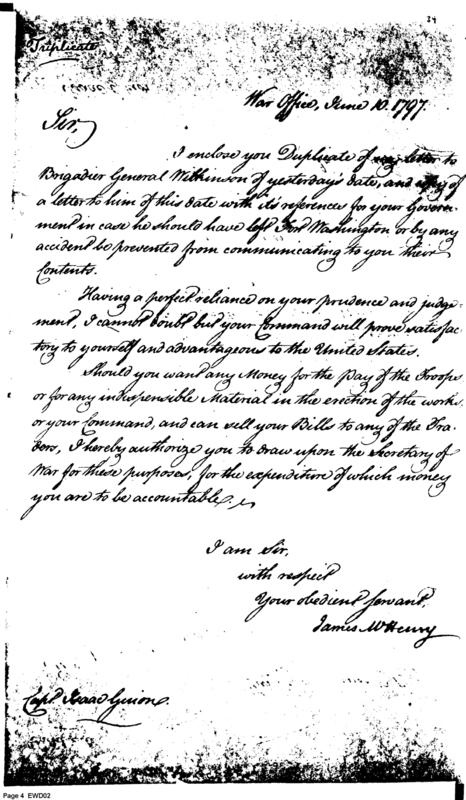 24
Triplicate
War Office, June 10. 1797.
Sir,
I enclose you Duplicate of my letter to
Brigadier General Wilkinson of yesterday's date, and copy of
a letter to him of this date with its references for your Govern-
ment in case he should have left Fort Washington or by any
accident be prevented from communicating to you their
Contents.
Having a perfect reliance on your prudence and judge-
ment, I cannot doubt but your Command will prove satisfac-
tory to yourself and advantageous to the United States.
Should you want any Money for the pay of the Troops
or for any indispensible Material in the erection of the works
or your Command, and can sell your Bills to any of the Tra-
ders, I hereby authorize you to draw upon the Secretary of
War for these purposes, for the expenditure of which money
you are to be accountable.
I am Sir,
with respect
Your obedient servant,
James McHenry
Capt. Isaac Guion.
Page 4 EWD02